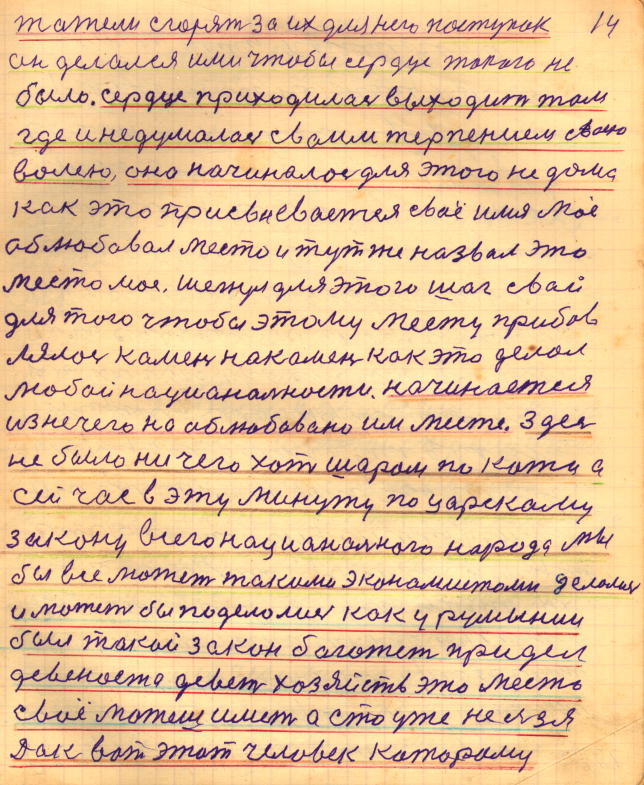 татели сгорят за их для него поступок 14
он делался ими чтобы сердце такого не
было. сердце приходилас выходит там
где и недумалас своим терпением своею
волею, оно начиналос для этого не дома
как это присваевается своё имя моё
облюбовал место и тут же назвал это
место мое. шежл для этого шаг свой
для того чтобы этому месту прибов
лялос камен на камен как это делал
любой националности. начинается
из нечего на облюбовано им месте. Здес
не было ничего хот шаром по кати а
сей час в эту минуту по царскому
закону всего национального народа мы
бы все может такими экономистоми делалис
и может бы поделалис как у румынии
был такой закон багатет придел
девеноста девет хозяйств это месть
своё можеш имет а сто уже нелзя
Дак вот этот человек каторому